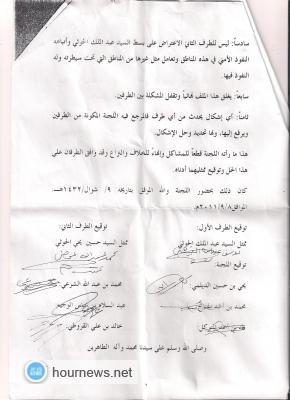 سادساً: ليس للطرف الثاني الاعتراض على بسط السيد عبد الملك الحوثي وأتباعه
النفوذ الأمني في هذه المناطق وتعامل مثل غيرها من المناطق التي تحت سيطرته وله
نفوذ فيها.
سابعاً: يغلق هذا الملف نهائياً وتقفل المشكلة بين الطرفين.
ثامناً: أي إشكال يحدث من أي طرف فالمرجع فيه اللجنة المكونة من الطرفين
ويرفع إليها، ولها تحديد وحل الإشكال.
هذا ما رأته اللجنة قطعاً للمشاكل وإنهاءً للخلاف والنزاع وقد وافق الطرفان على
هذا الحل وتوقيع ممثليهما أدناه.
كان ذلك بحضور اللجنة والله الموفق بتاريخه ٩/ شوال/١٤٣٢هـ
الموافق ٢٠١١/٩/٨م.
توقيع الطرف الأول:
توقيع الطرف الثاني:
ممثل السيد عبد الملك الحوثي
ممثل السيد حسين يحي الحوثي
توقيع اللجنة:
يحي بن حسين الديلمي
محمد بن عبد الله الشرعي
محمد بن
عبد السلام بن عباس الوجيه
خالد بن علي القروطي
وصلى الله وسلم على سيدنا محمد وآله الطاهرين
hournews.net